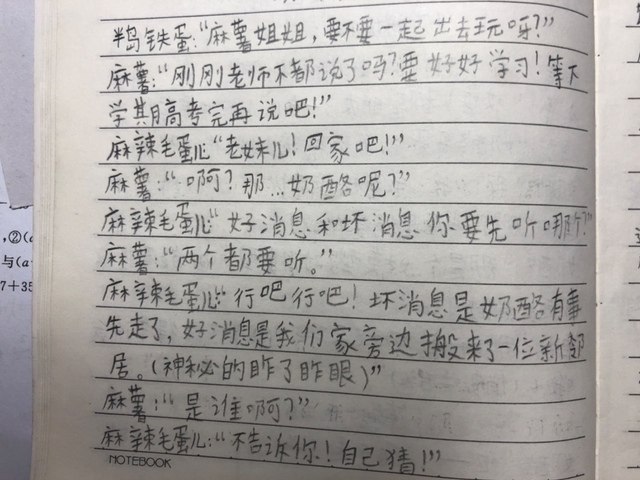 半岛铁蛋:“麻薯姐姐,要不要一起出去玩呀?”
麻薯:“刚刚老师不都说了吗?要好好学习!等下
学期高考完再说吧!”
麻辣毛蛋儿“老妹儿!回家吧!”
麻薯:“啊?那...奶酪呢?”
麻辣毛蛋儿“好消息和坏消息你要先听哪个?”
麻薯:“两个都要听。”
麻辣毛蛋儿“行吧行吧!坏消息是奶酪有事
先走了,好消息是我们家旁边搬来了一位新邻
居。(神秘的眨了眨眼)”
麻薯:“是谁啊?”
麻辣毛蛋儿:“不告诉你!自己猜!”
NOTEBOOK
,②(a
与(a
7+35